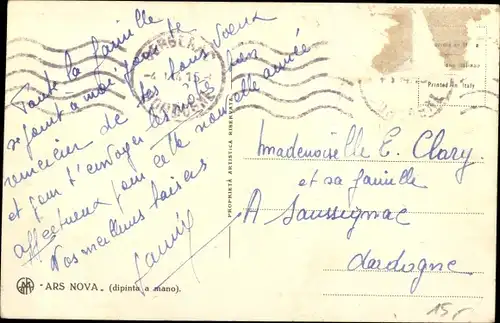 Toute la famille
se joint à moi pour te
remercier de tes bons voeux
et pour t'envoyer les nôtres bien
affectueux pour cette nouvelle année
Nos meilleurs baisers
Fannie
ARS NOVA - (dipinta a mano).
PROPRIETÀ ARTISTICA RISERVATA
Printed in Italy
Mademoiselle E. Clary
et sa famille
A Saussignac
dordogne
15,-